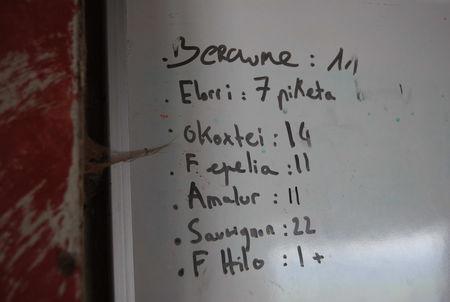 . Berawne : 1,1
. Elorri : 7 piketa
. OKoxtei : 14
. F. epelia : 11
. Amalur : 11
. Sauvignon : 22
. F Hilo : 1 +